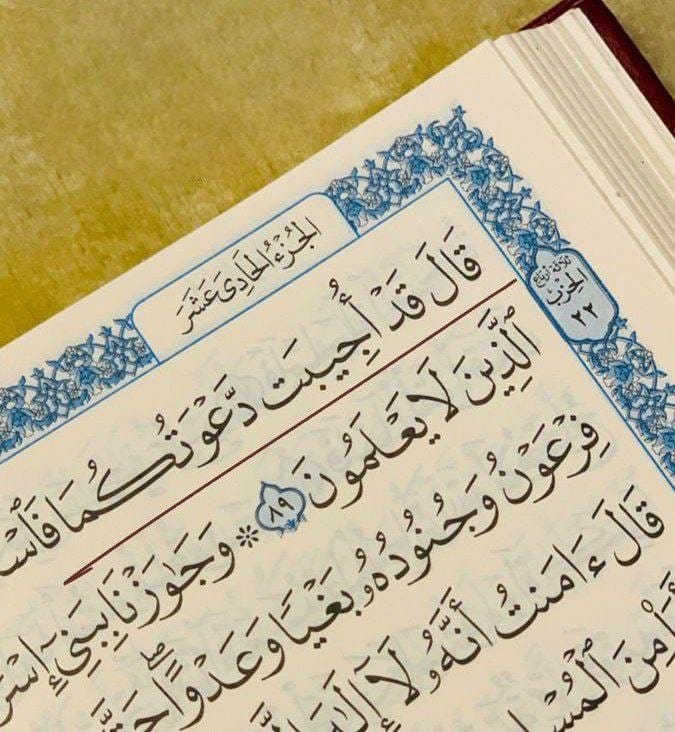 الجُزْءُ الحَادِىَ عَشَرَ
ثلاثة أرباع
الحِزْبُ
٢٢
قَالَ قَدْ أُجِيبَت دَّعْوَتُكُمَا فَٱسْ
ٱلَّذِينَ لَا يَعْلَمُونَ ٨٩ * وَجَٰوَزْنَا بِبَنِىٓ إِسْرَ
فِرْعَوْنُ وَجُنُودُهُۥ بَغْيًا وَعَدْوًا ۖ حَتَّ
قَالَ ءَامَنتُ أَنَّهُۥ لَآ إِلَٰهَ إِلَّ
مِنَ ٱلْمُسْ